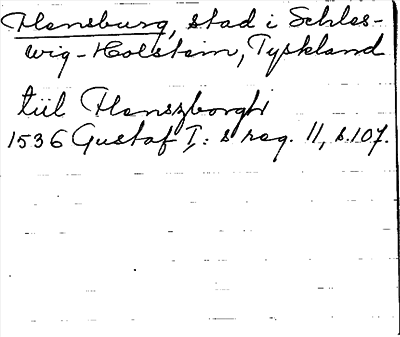 Flensburg, stad i Schles-
wig-Holstein, Tyskland
tiil Flenszborgh
1536 Gustaf I:s reg. 11, s.107.